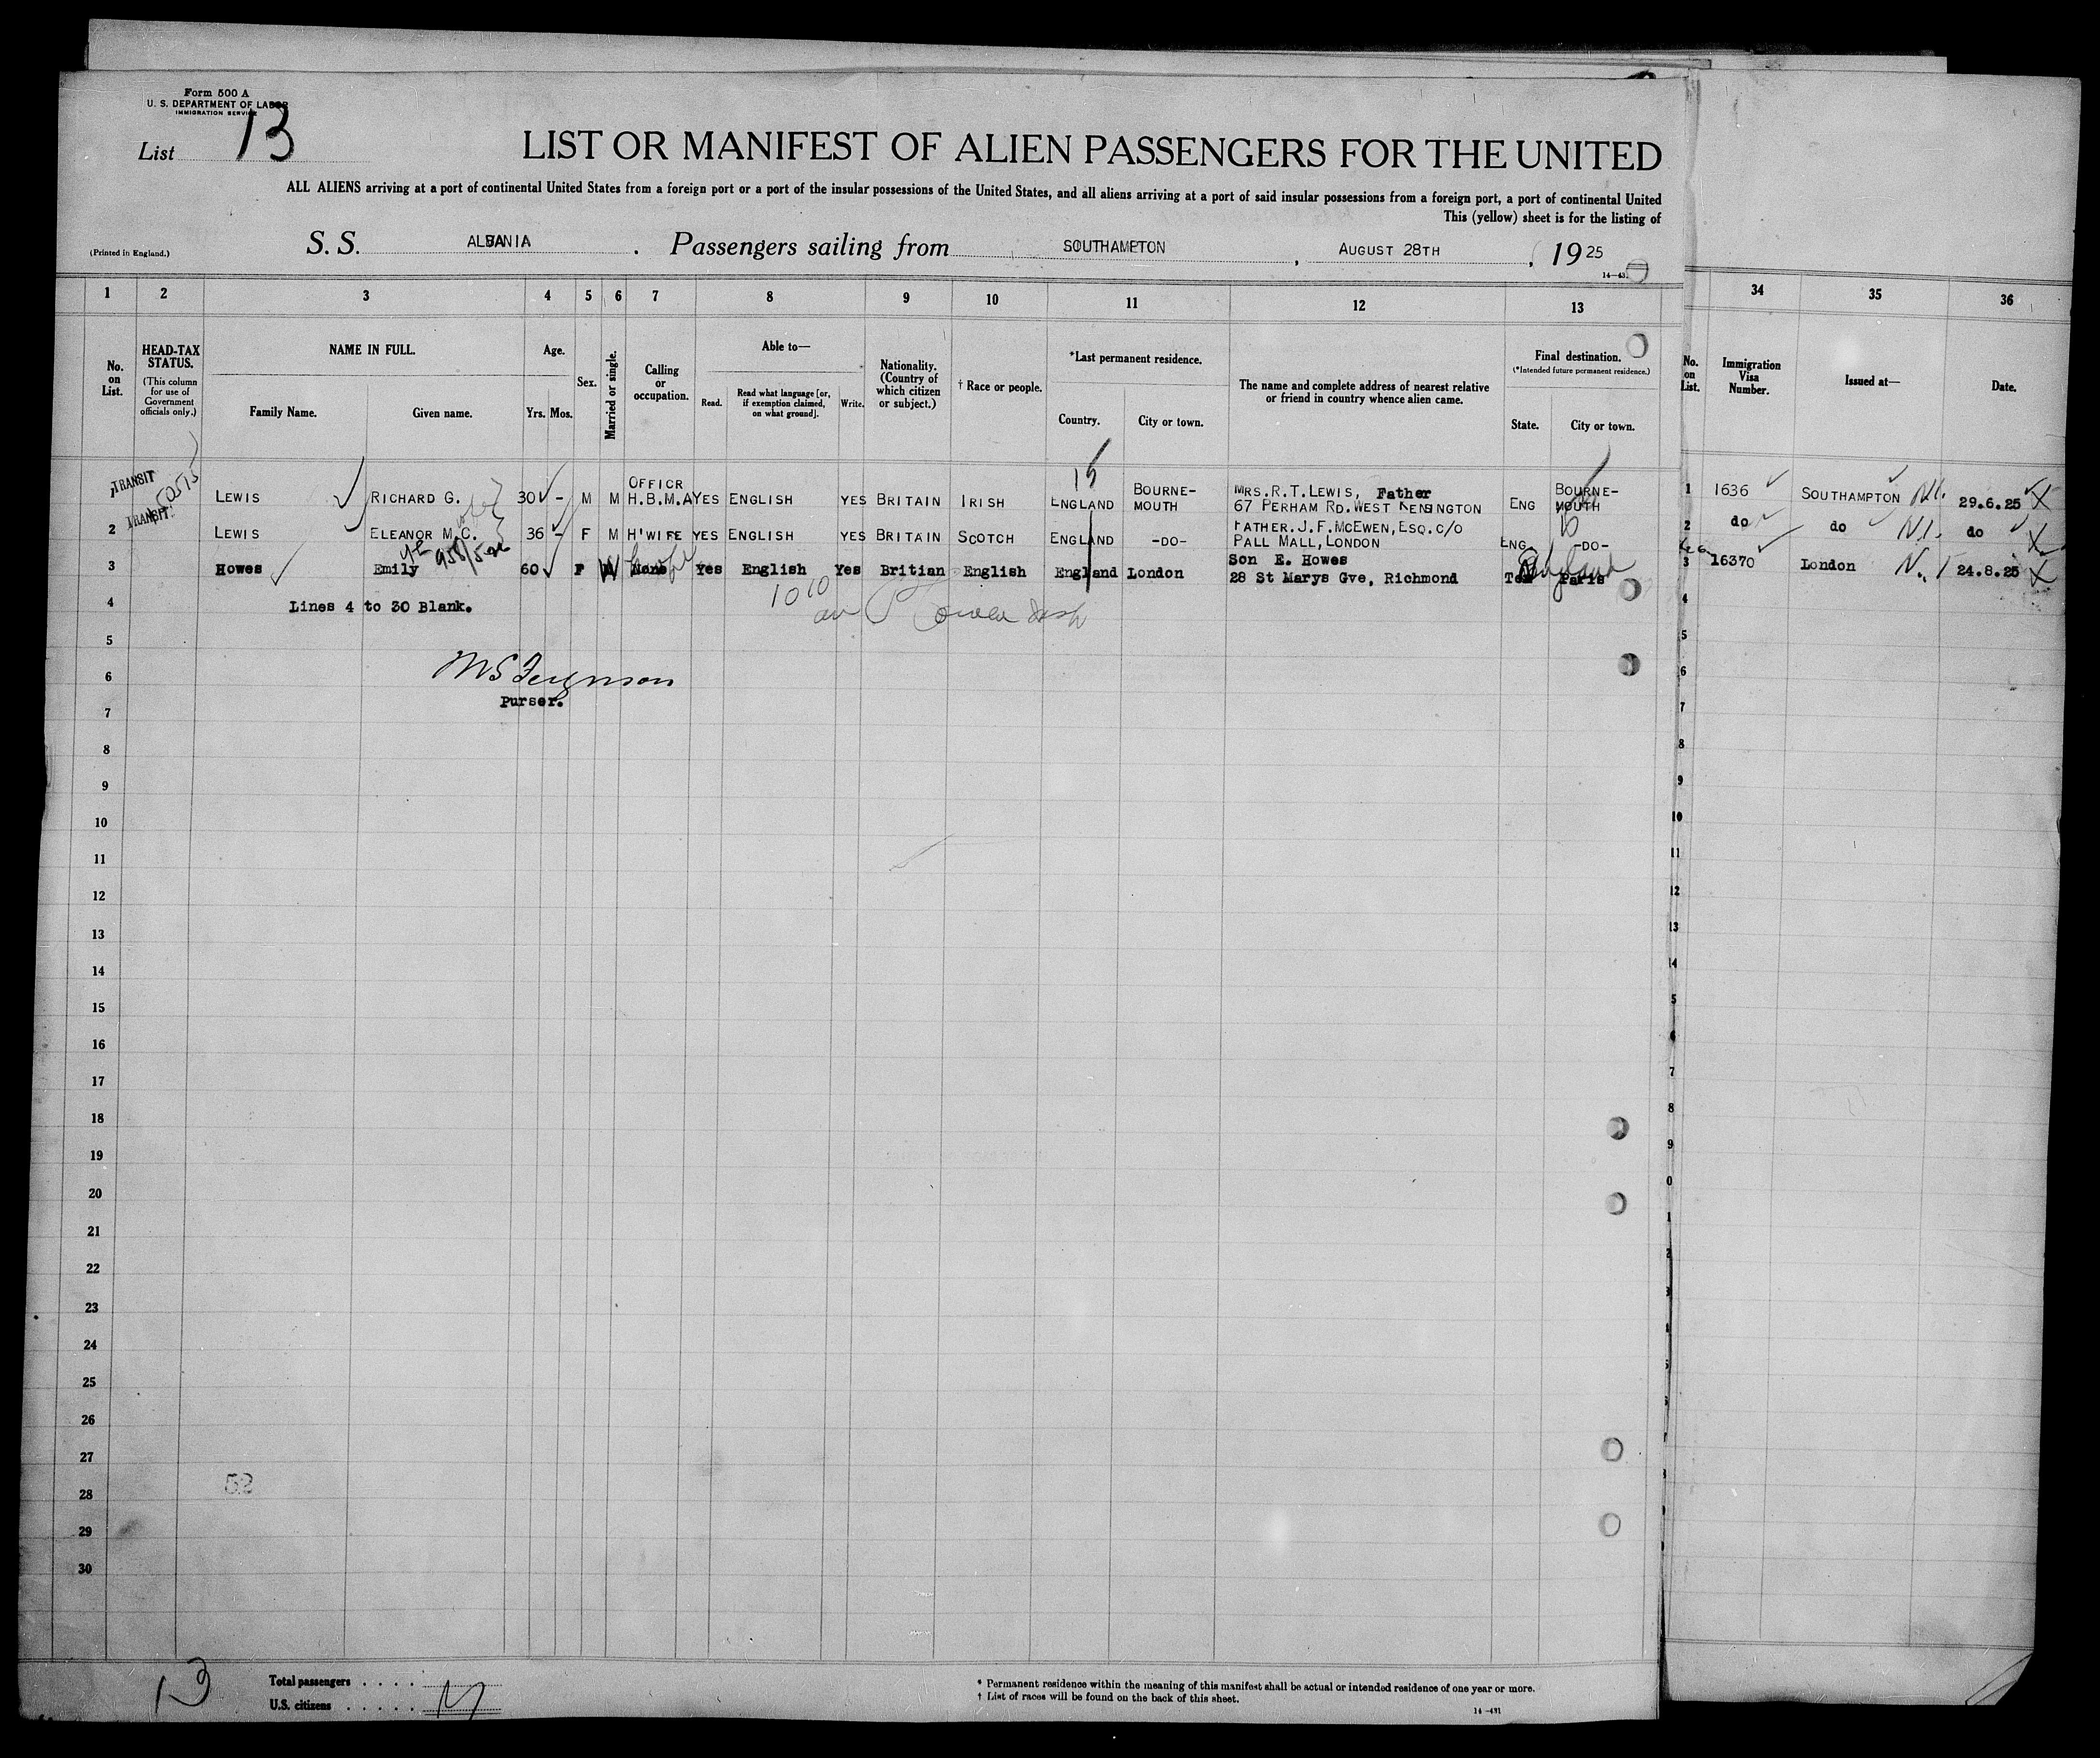 Form 500 A
U. S. DEPARTMENT OF LABOR
IMMIGRATION SERVICE
List 13
LIST OR MANIFEST OF ALIEN PASSENGERS FOR THE UNITED
ALL ALIENS arriving at a port of continental United States from a foreign port or a port of the insular possessions of the United States, and all aliens arriving at a port of said insular possessions from a foreign port, a port of continental United
This (yellow) sheet is for the listing of
(Printed in England.)
S. S. ALBANIA . Passengers sailing from SOUTHAMPTON , AUGUST 28TH , 1925
1 2 3 4 5 6 7 8 9 10 11 12 13 34 35 36
No. on List.
HEAD-TAX STATUS.
(This column for use of Government officials only.)
NAME IN FULL.
Family Name. Given name.
Age.
Yrs. Mos.
Sex.
Married or single.
Calling or occupation.
Able to—
Read.
Read what language [or, if exemption claimed, on what ground].
Write.
Nationality. (Country of which citizen or subject.)
† Race or people.
*Last permanent residence.
Country. City or town.
The name and complete address of nearest relative or friend in country whence alien came.
Final destination.
(*Intended future permanent residence.)
State. City or town.
No. on List.
Immigration Visa Number.
Issued at—
Date.
TRANSIT
1 LEWIS RICHARD G. 30 - M M OFFICR H.B.M.A YES ENGLISH YES BRITAIN IRISH ENGLAND BOURNE-MOUTH MRS.R.T.LEWIS, Father 67 PERHAM RD.WEST KENSINGTON ENG BOURNE-MOUTH 1 1636 SOUTHAMPTON 29.6.25
TRANSIT
2 LEWIS ELEANOR M.C. 36 - F M H'WIFE YES ENGLISH YES BRITAIN SCOTCH ENGLAND -DO- FATHER.J.F.MCEWEN,ESQ.C/O PALL MALL,LONDON ENG -DO- 2 do do do
3 Howes Emily 60 F W None Yes English Yes Britian English England London Son E. Howes 28 St Marys Gve, Richmond Tex Paris 3 16370 London 24.8.25
4 Lines 4 to 30 Blank. 4
5 5
6 6
Purser.
7 7
8 8
9 9
10 10
11 11
12 12
13 13
14 14
15 5
16 6
17 7
18 8
19 9
20 0
21 1
22 2
23
24
25
26
27
52
28
29
30
13
Total passengers . . . .
U.S. citizens . . . . . .
* Permanent residence within the meaning of this manifest shall be actual or intended residence of one year or more.
† List of races will be found on the back of this sheet.
14-431